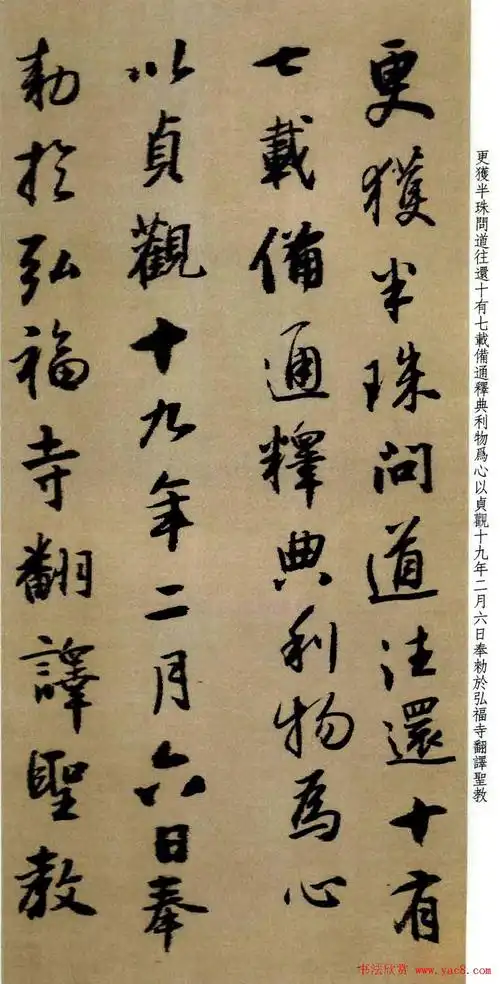 更獲半珠問道往還十有
七載備通釋典利物爲心
以貞觀十九年二月六日奉
勅於弘福寺翻譯聖教
更獲半珠問道往還十有七載備通釋典利物爲心以貞觀十九年二月六日奉勅於弘福寺翻譯聖教
书法欣赏 www.yac8.com